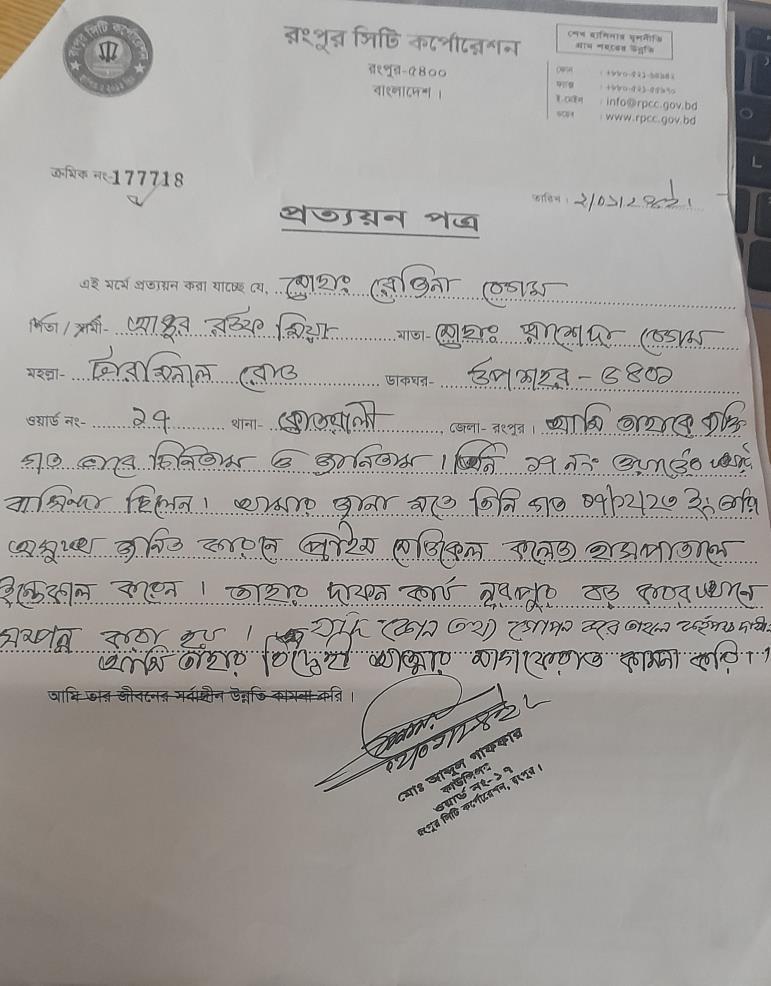 রংপুর সিটি কর্পোরেশন
রংপুর-৫৪০০
বাংলাদেশ।
শেখ হাসিনার মূলনীতি
গ্রাম শহরের উন্নতি
ফোন
ফ্যাক্স
ই-মেইল : info@rpcc.gov.bd
ওয়েব : www.rpcc.gov.bd
রংপুর সিটি কর্পোরেশন
ক্রমিক নং-177718
তারিখ :
প্রত্যয়ন পত্র
এই মর্মে প্রত্যয়ন করা যাচ্ছে যে, মোছাঃ বেগম
পিতা / স্বামী- আব্দুর রউফ মিয়া মাতা- মোছাঃ বেগম
মহল্লা- রোড ডাকঘর- উপশহর - ৫৪০১
ওয়ার্ড নং- ২৭ থানা- কোতয়ালী জেলা- রংপুর। আমি তাহাকে ব্যক্তি
গত ভাবে চিনিতাম ও জানিতাম। তিনি নং ওয়ার্ডের স্থায়ী
বাসিন্দা ছিলেন। আমার জানা মতে তিনি গত ইং তারিখ
অসুস্থ জনিত কারনে প্রাইম মেডিকেল কলেজ হাসপাতালে
ইন্তেকাল করেন। তাহার দাফন কার্য নূরপুর বড় কবরস্থানে
সম্পন্ন করা হয়। যদি কোন তথ্য গোপন করে তাহলে
আমি তাহার বিদেহী আত্মার মাগফেরাত কামনা করি।
আমি তার জীবনের সর্বাঙ্গীন উন্নতি কামনা করি।
মোঃ আব্দুল গাফফার
কাউন্সিলর
ওয়ার্ড নং-১৭
রংপুর সিটি কর্পোরেশন, রংপুর।